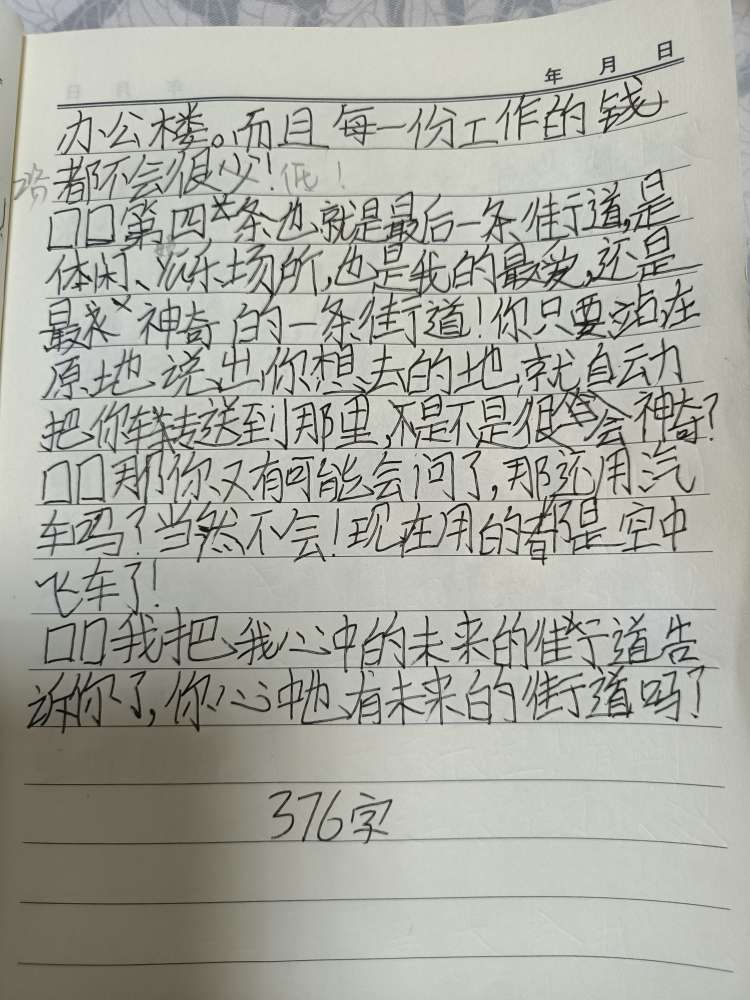 年 月 日
办公楼。而且每一份工作的钱
都不会很少！低！
口口第四条也就是最后一条街道,是
休闲、娱乐场所,也是我的最爱,还是
最神奇的一条街道！你只要站在
原地说出你想去的地就自动
把你转送到那里,不是不是很神奇？
口口那你又有可能会问了,那还用汽
车吗？当然不会！现在用的都是空中
飞车了！
口口我把我心中的未来的街道告
诉你了,你心中也有未来的街道吗？
376字